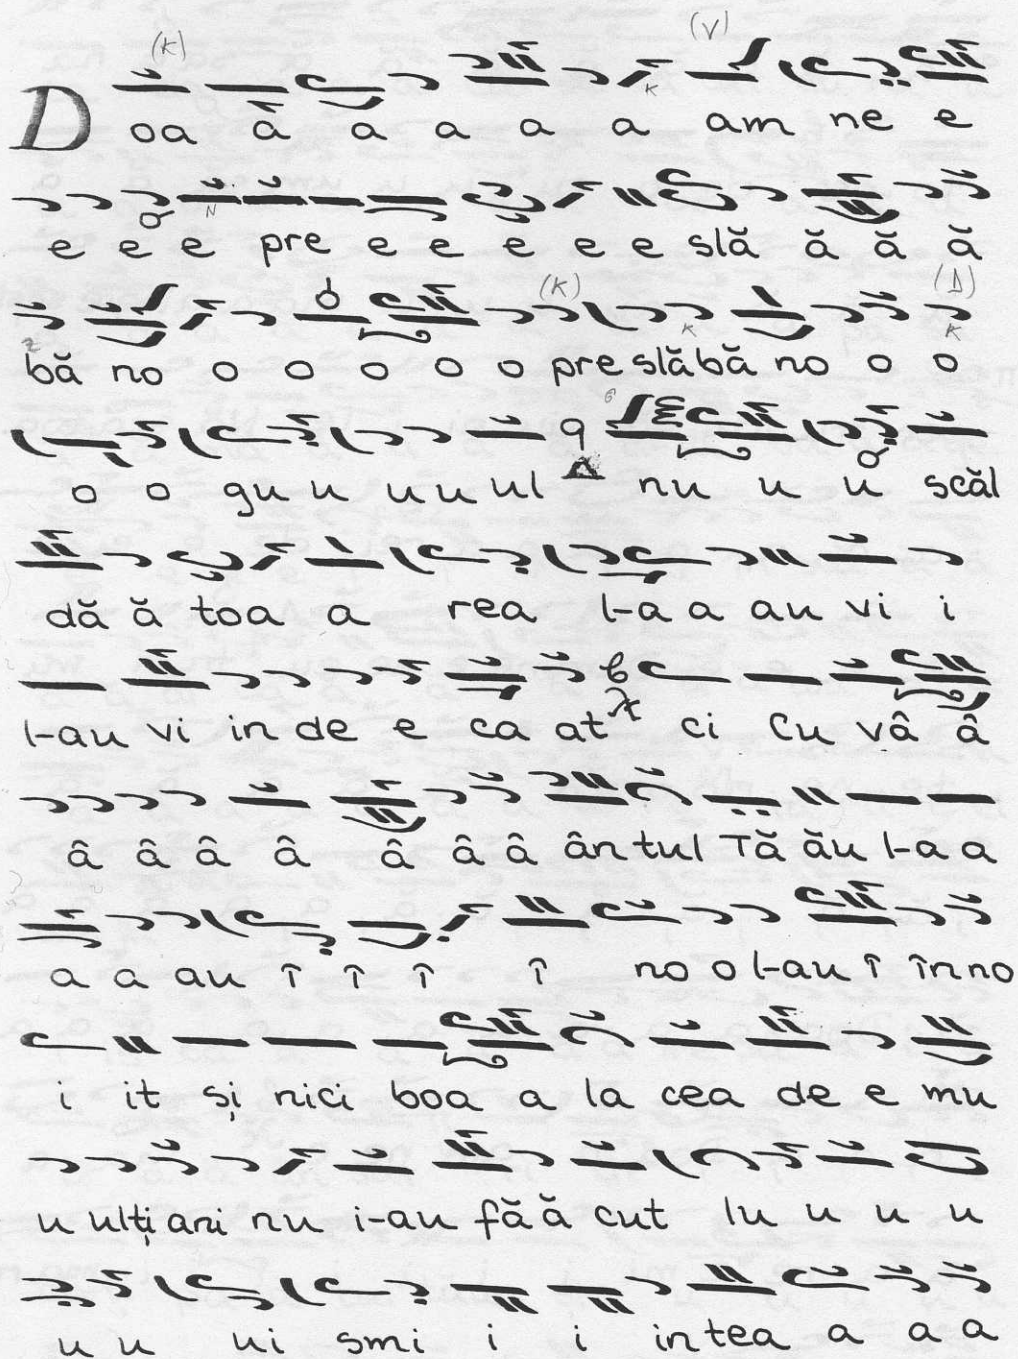 (K) (V)
Doa a a a a a am ne e
e e e pre e e e e e slă ă ă ă
(K) (Δ)
bă no o o o o o pre slăbă no o o
o o gu u u u ul nu u u scăl
dă ă toa a rea l-a a au vi i
l-au vi in de e ca at ci Cu vâ â
â â â â â â â ân tul Tă ău l-a a
a a au î î î î no o l-au î în no
i it și nici boa a la cea de e mu
u ulți ani nu i-au fă ă cut lu u u u
u u ui smi i i in tea a a a